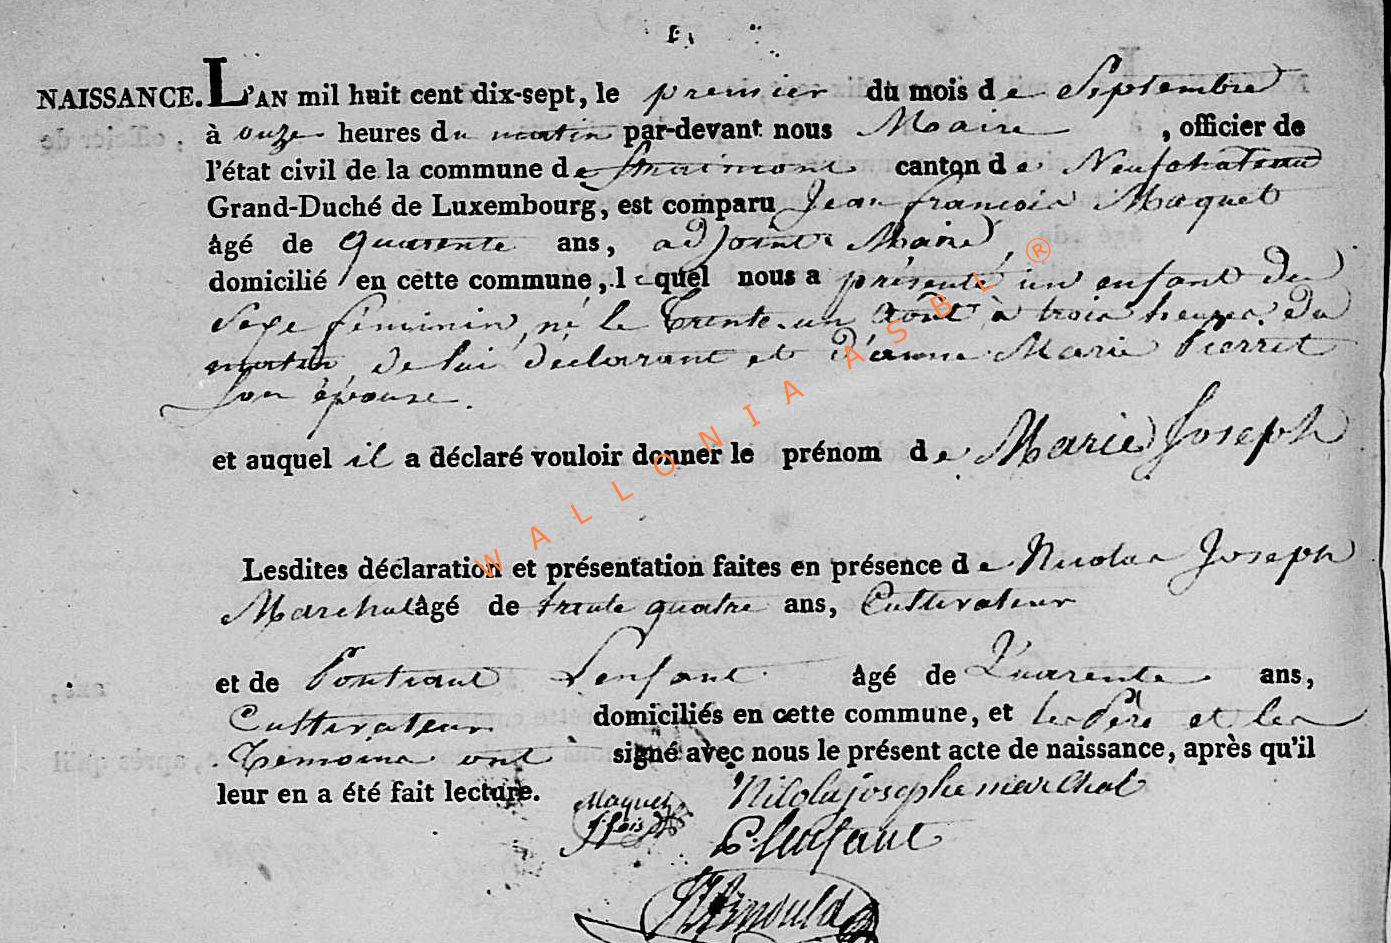 NAISSANCE. L'AN mil huit cent dix-sept, le premier du mois de Septembre
à onze heures du matin par-devant nous Maire , officier de
l'état civil de la commune de Straimont canton de Neufchateau
Grand-Duché de Luxembourg, est comparu Jean francois Maquet
âgé de quarente ans, adjoint Maire
domicilié en cette commune, lequel nous a présenté un enfant du
Sexe féminin, né le trente-un Août à trois heures du
matin, de lui déclarant et d'anne Marie Pierret
Son épouse.
et auquel il a déclaré vouloir donner le prénom de Marie Joseph
Lesdites déclaration et présentation faites en présence de Nicolas Joseph
Marchal âgé de trente quatre ans, Cultivateur
et de Pontiant Lenfant âgé de Quarente ans,
Cultivateur domiciliés en cette commune, et les Père et les
Temoins ont signé avec nous le présent acte de naissance, après qu'il
leur en a été fait lecture. Maquet Nicolas josephe marchal
J fois P. Lenfant
Arnould
WALLONIA ASBL ®